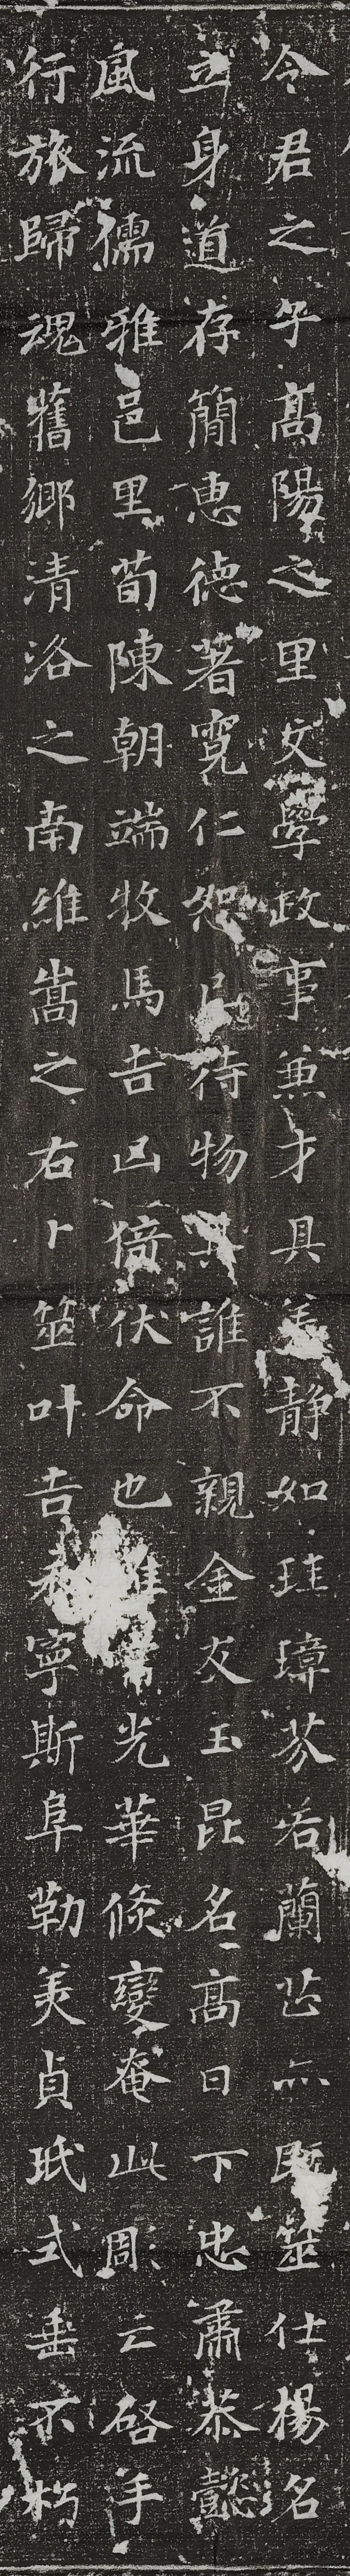 令君之子高陽之里文學政事兼才具靜如珪璋芬若蘭芷亦既筮仕揚名
立身道存簡惠德著寬仁恕己待物其誰不親金友玉昆名高日下忠肅恭懿
風流儒雅邑里荀陳朝端牧馬吉凶倚伏命也光華倏變奄此周云啓手
行旅歸魂舊鄉清洛之南維嵩之右卜筮叶吉寧斯阜勒美貞珉式垂不朽